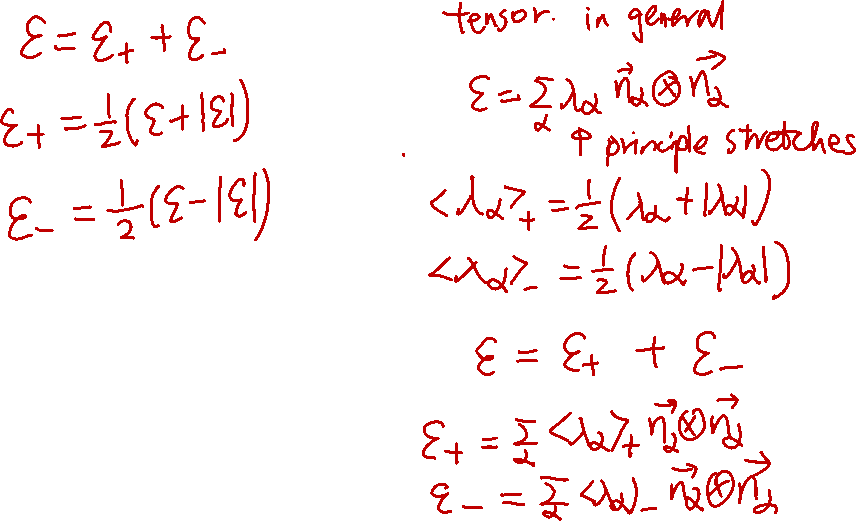 ε = ε₊ + ε₋
ε₊ = ½(ε+|ε|)
ε₋ = ½(ε-|ε|)
tensor. in general
ε = Σ_α λ_α n⃗_α ⊗ n⃗_α
↑ principle stretches
<λ_α>₊ = ½(λ_α + |λ_α|)
<λ_α>₋ = ½(λ_α - |λ_α|)
ε = ε₊ + ε₋
ε₊ = Σ_α <λ_α>₊ n⃗_α ⊗ n⃗_α
ε₋ = Σ_α <λ_α>₋ n⃗_α ⊗ n⃗_α